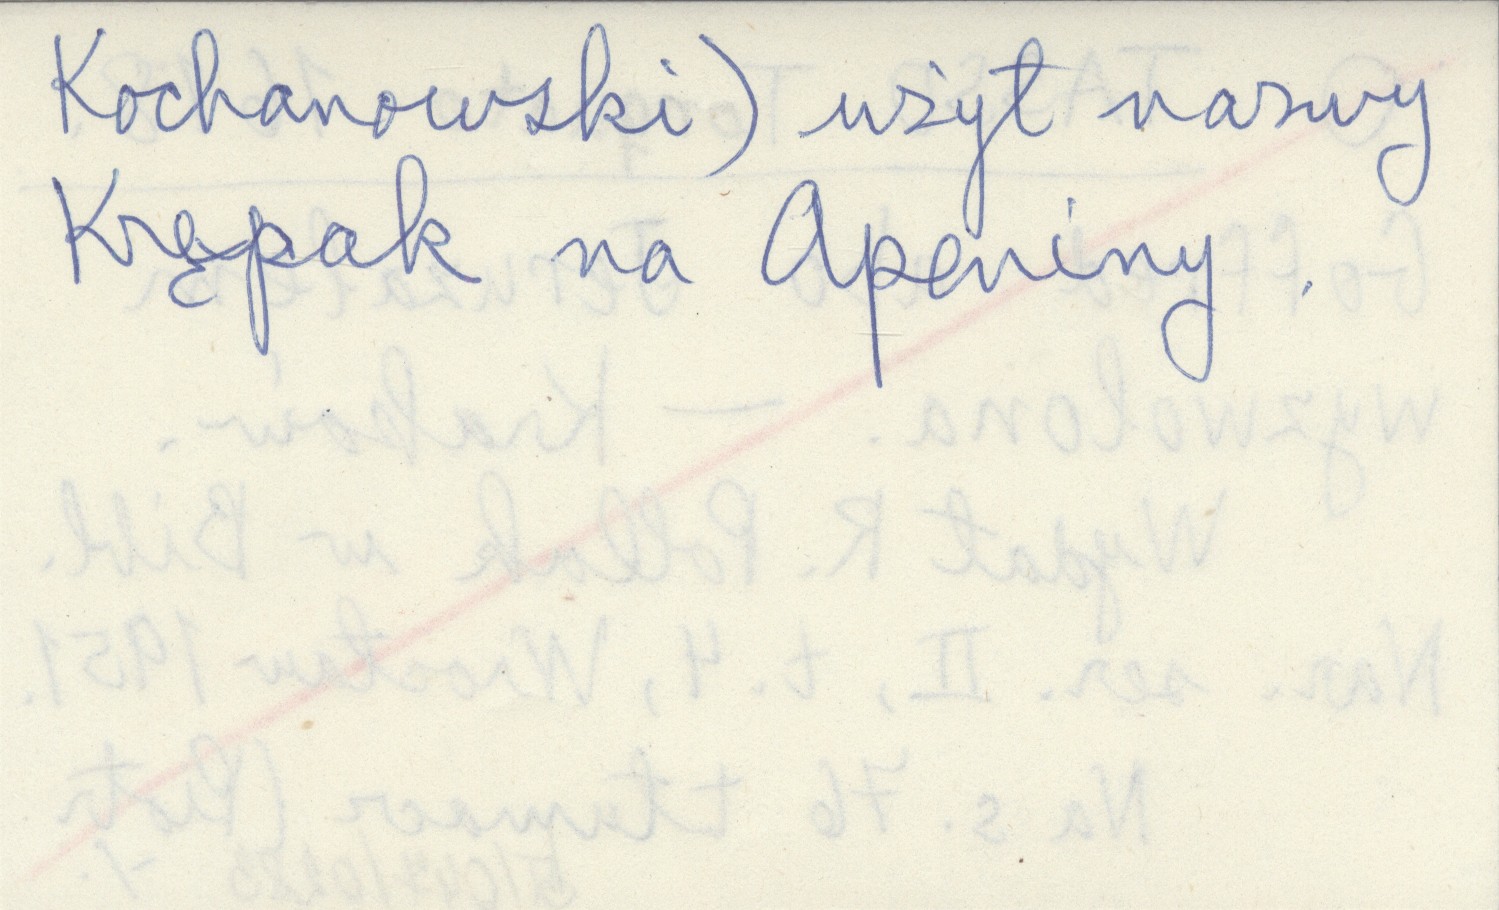 Kochanowski) użył nazwy
Krępak na Apeniny.